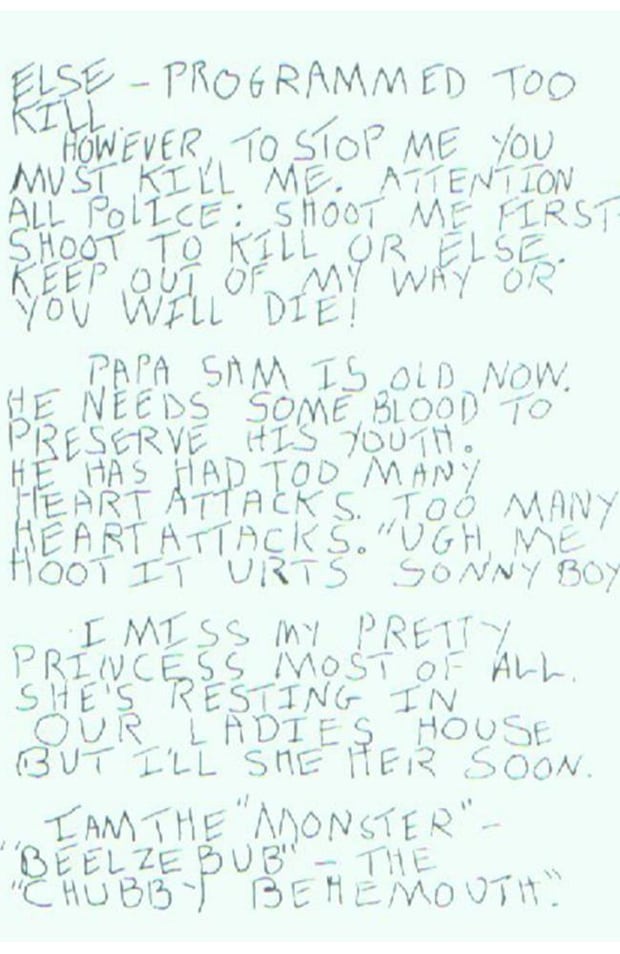 ELSE - PROGRAMMED TOO
KILL
HOWEVER, TO STOP ME YOU
MUST KILL ME. ATTENTION
ALL POLICE: SHOOT ME FIRST-
SHOOT TO KILL OR ELSE.
KEEP OUT OF MY WAY OR
YOU WILL DIE!
PAPA SAM IS OLD NOW.
HE NEEDS SOME BLOOD TO
PRESERVE HIS YOUTH.
HE HAS HAD TOO MANY
HEART ATTACKS. TOO MANY
HEART ATTACKS. "UGH, ME
HOOT IT URTS SONNY BOY
I MISS MY PRETTY
PRINCESS MOST OF ALL.
SHE'S RESTING IN
OUR LADIES HOUSE
BUT I'LL SHE HER SOON.
I AM THE "MONSTER" -
"BEELZEBUB" - THE
"CHUBBY BEHEMOUTH."